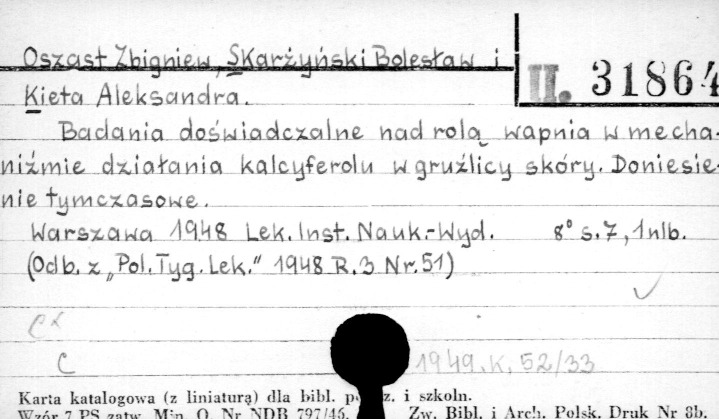 Oszast Zbigniew, Skarżyński Bolesław i
II. 31864
Kieta Aleksandra.
Badania doświadczalne nad rolą wapnia w mecha-
niźmie działania kalcyferolu w gruźlicy skóry. Doniesie-
nie tymczasowe.
Warszawa 1948 Lek. Inst. Nauk.-Wyd. 8° s. 7, 1 nlb.
(Odb. z „Pol. Tyg. Lek." 1948 R. 3 Nr. 51)
C
1949. K. 52/33
Karta katalogowa (z liniaturą) dla bibl. i szkoln.
Wzór 7 PS zatw. Min. O. Nr NDB 797/46. Zw. Bibl. i Arch. Polsk. Druk Nr 8b.